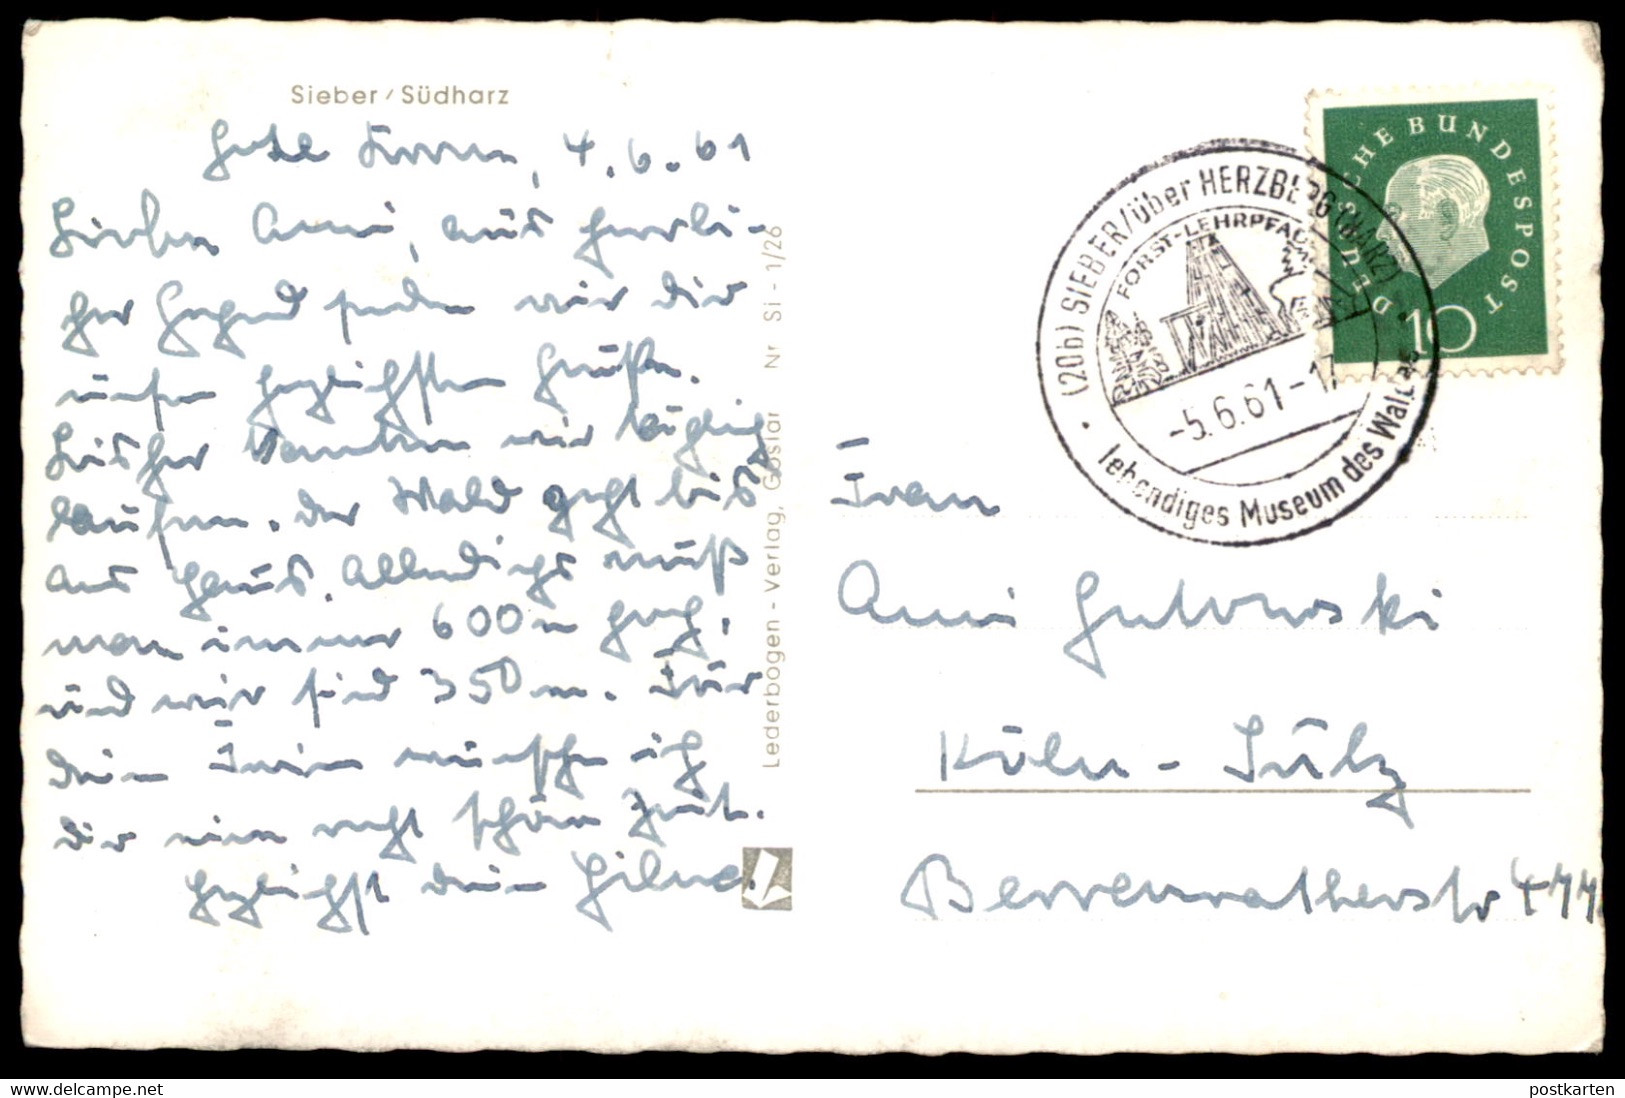 Sieber / Südharz
4.6.61
Liebe Anni, aus herrli-
cher Gegend senden wir dir
unsere herzlichsten Grüße.
Bisher konnten wir täglich
laufen. Der Wald geht bis
ans Haus. Allerdings muß
man immer 600 m hoch,
und wir sind 350 m. Für
dein wünsche ich
dir eine recht schöne Zeit.
Herzlichst dein
Lederbogen - Verlag, Goslar Nr Si - 1/26
DEUTSCHE BUNDESPOST
10
(20b) SIEBER/über HERZBERG (HARZ)
FORST-LEHRPFAD
-5.6.61-17
lebendiges Museum des Waldes
Frau
Anni Gutowski
Köln - Sülz
Berrenratherstr 477
www.delcampe.net
postkarten